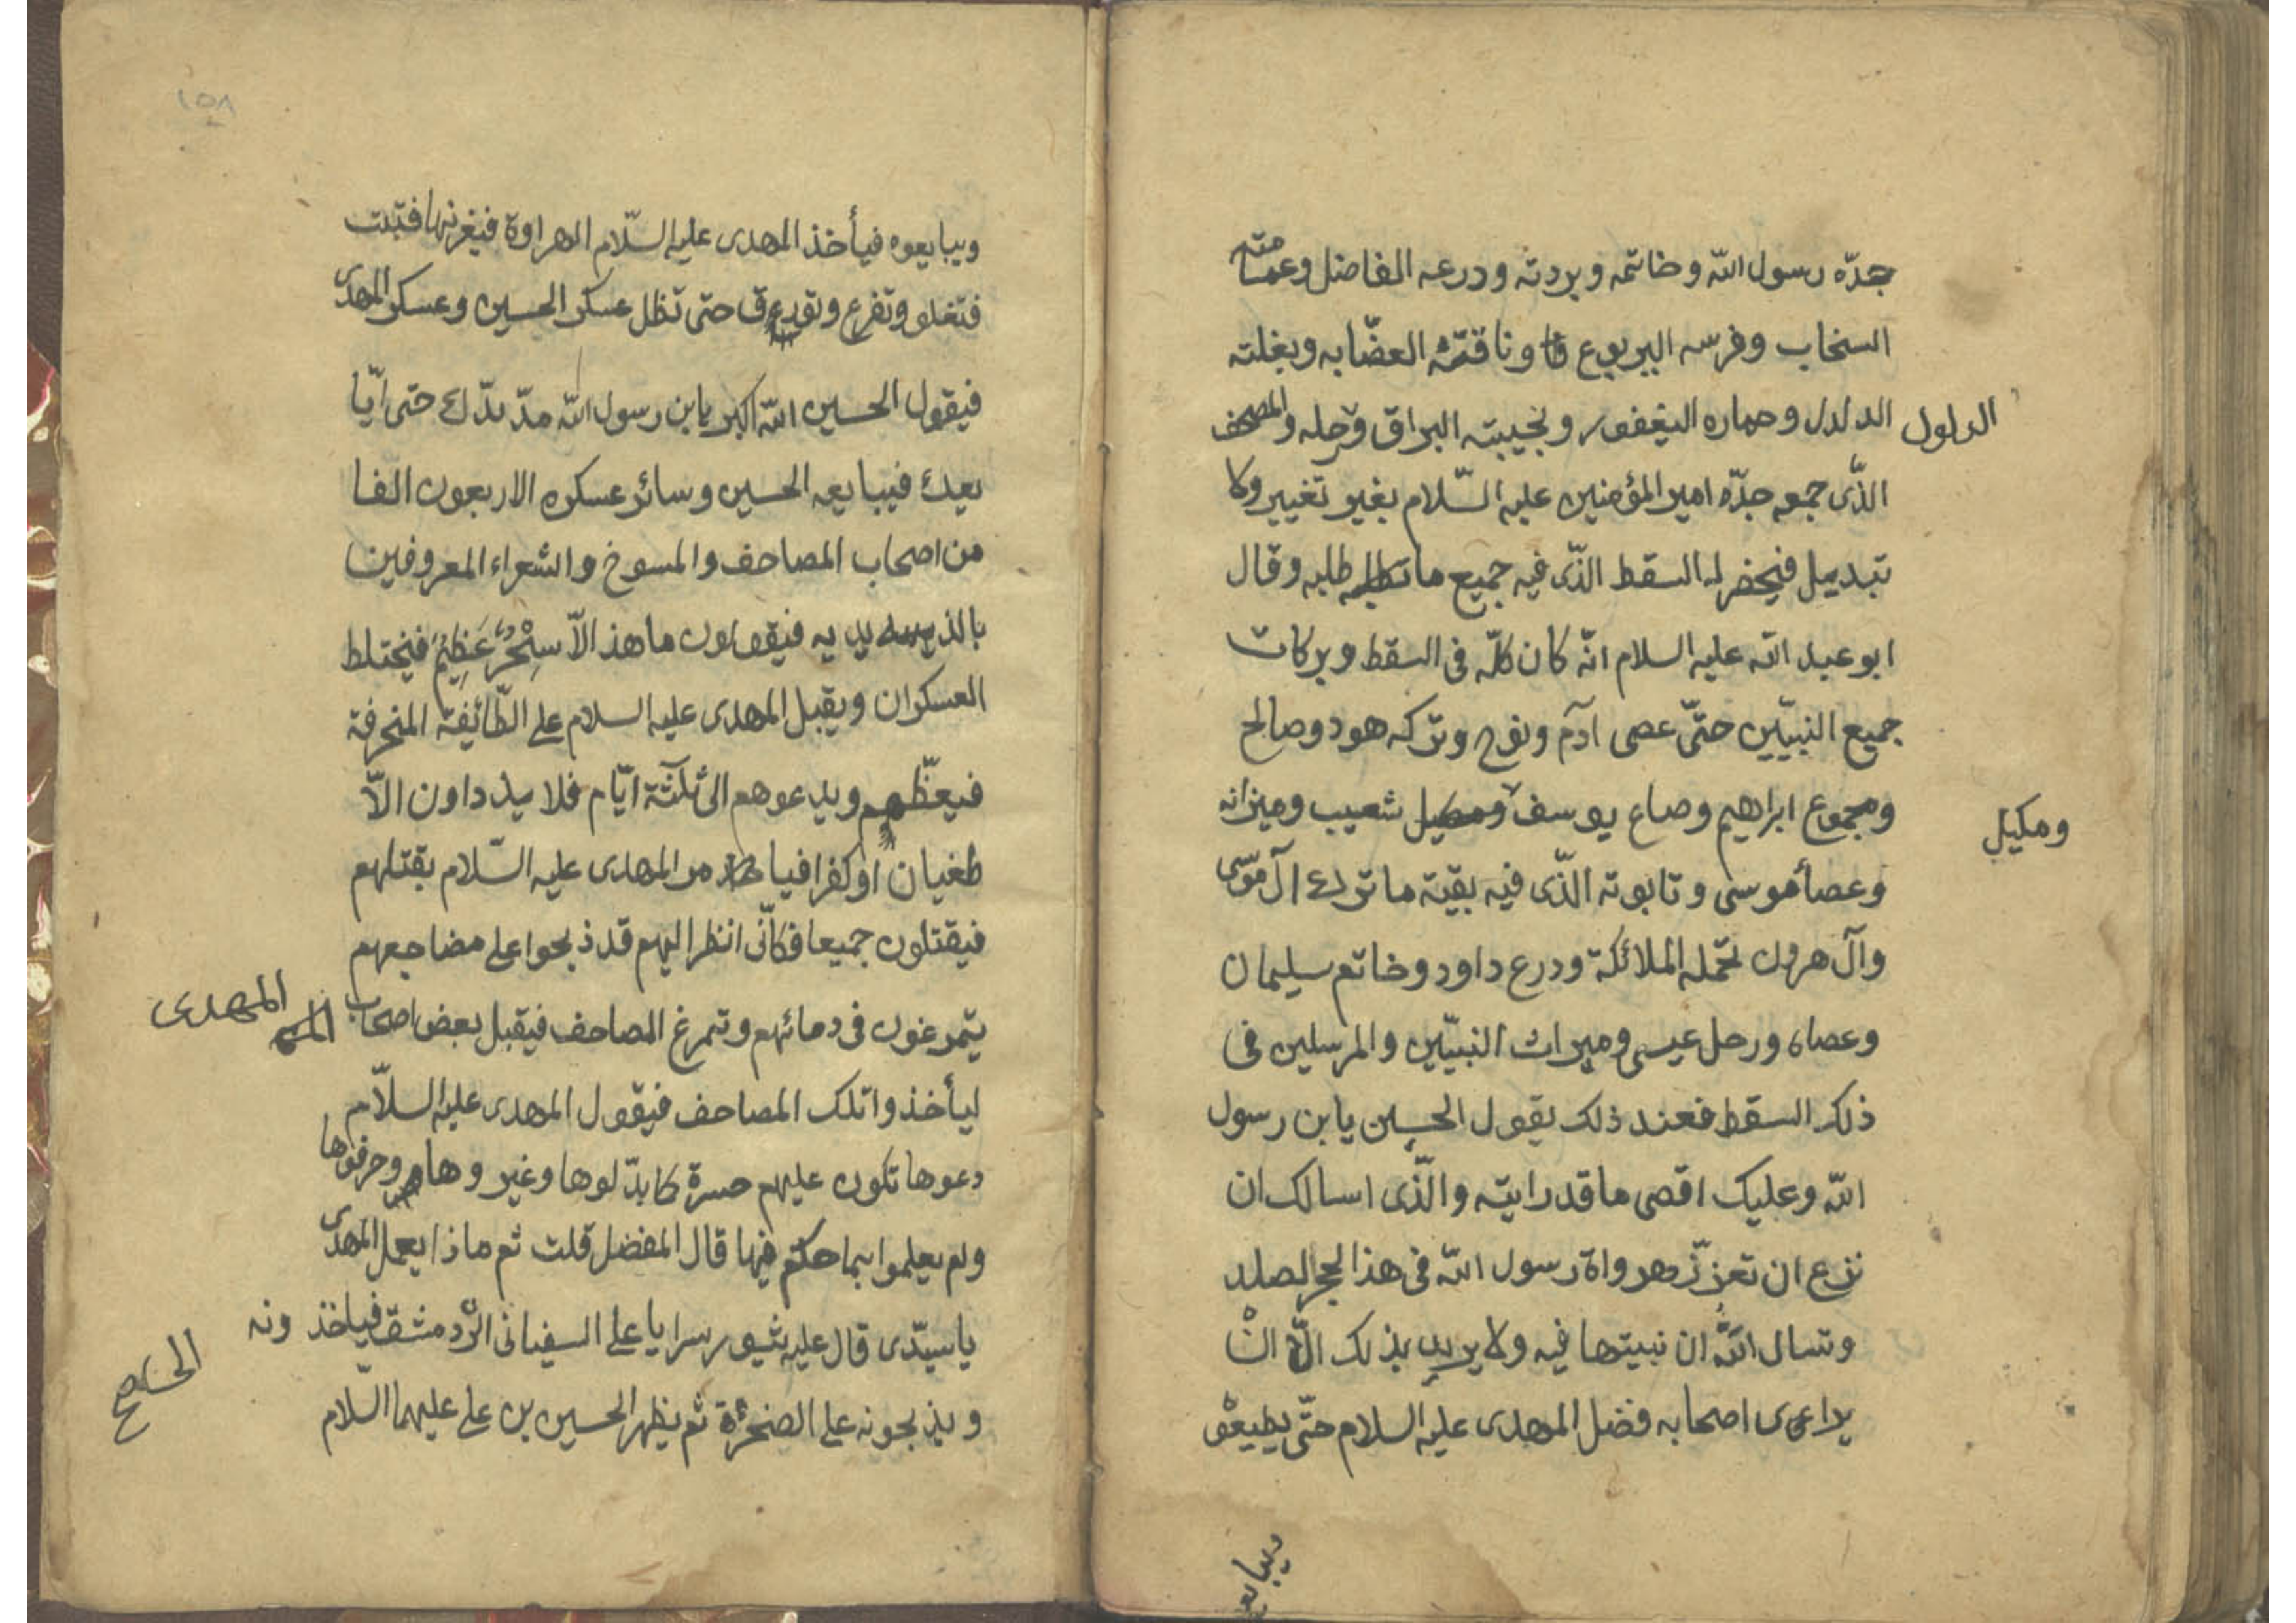 جدّه رسول الله وخاتمه وبردته ودرعه الفاضل وعمامته
السخاب وفرسه اليربوع وناقته العضّابه وبغلته
الدلدل وحماره اليغفور ونجيبته البراق ورحله والمصحف
الدلول
الذّى جمعه جدّه امير المؤمنين عليه السّلام بغير تغيير ولا
تبديل فيحضر له السقط الذّى فيه جميع ما طلبه وقال
ابو عبد الله عليه السلام انّه كان كلّه فى السقط وبركات
جميع النبيّين حتّى عصى آدم ونوح وتركه هود وصالح
ومجموع ابراهيم وصاع يوسف ومكيل شعيب وميزانه
ومكيل
وعصا موسى وتابوته الذّى فيه بقيّة ما ترك آل موسى
وآل هرون تحمله الملائكة ودرع داود وخاتم سليمان
وعصاه ورحل عيسى وميراث النبيّين والمرسلين فى
ذلك السقط فعند ذلك يقول الحسين يابن رسول
الله وعليك اقصى ما قد رايته والّذى اسالك ان
تغرز هرواة رسول الله فى هذا الحجر الصلد
وتسال الله ان نبيتها فيه ولا يريد بذلك الّا ان
اصحابه فضل المهدى عليه السلام حتّى يطيعو
ويبايعو
١٥٨
ويبايعوه فيأخذ المهدى عليه السّلام الهراوة فيغرنها فتبتت
فتغلو وتفرع وتورق حتى تظل عسكر الحسين وعسكر المهدى
فيقول الحسين الله اكبر يابن رسول الله مدّ يدّك حتى ابّا
يعك فيبايعه الحسين وسائر عسكره الاربعون الفا
من اصحاب المصاحف والمسوخ والشعراء المعروفين
فيقولون ما هذا الاّ سِحْرٌ عَظِيمٌ فيختلط
العسكران ويقبل المهدى عليه السلام على الطّائفة المنحرفة
فيعظّهم ويدعوهم الى ثلثة ايّام فلا يزدادون الاّ
طغيان او كفرا فيامر المهدى عليه السّلام بقتلهم
فيقتلون جميعا فكانّى انظر اليهم قد ذبحوا على مضاجعهم
يتمرغون فى دمائهم وتمرغ المصاحف فيقبل بعض اصحاب
المهدى
ليأخذوا تلك المصاحف فيقول المهدى عليه السلاّم
دعوها تكون عليهم حسرة كا بدّلوها وغيروها وحرفوها
ولم يعلموا بما حكم فيها قال المفضل قلت ثم ماذا يعمل المهدى
يا سيّدى قال عليه يثور سرايا على السفيانى الى دمشق فياخذونه
ويذبحونه على الصخرة ثم يظهر الحسين بن على عليهما السّلام